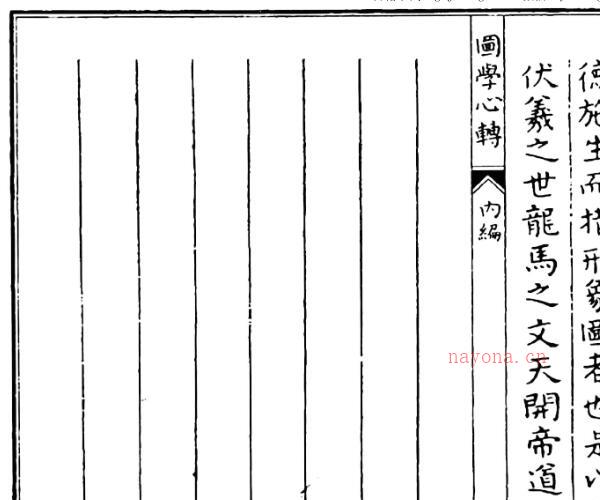 德施生而指形象圖者也是以
伏羲之世龍馬之文天開帝道
圖學心轉
內編
nayona.cn